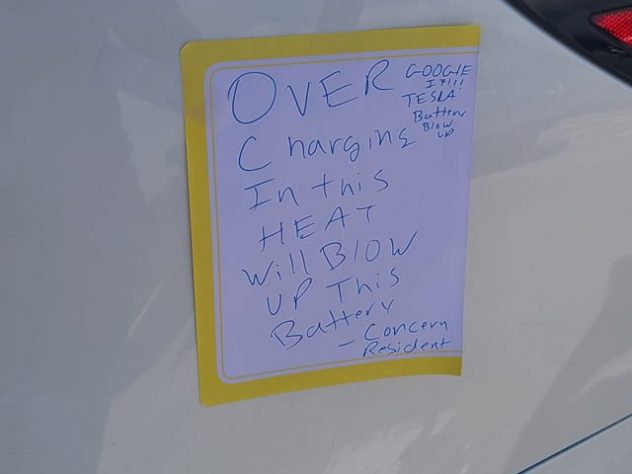 OVER
Charging
In this
HEAT
will Blow
UP This
Battery
- Concern
Resident
GOOGLE
IT!!!
TESLA!
Battery
Blow
up